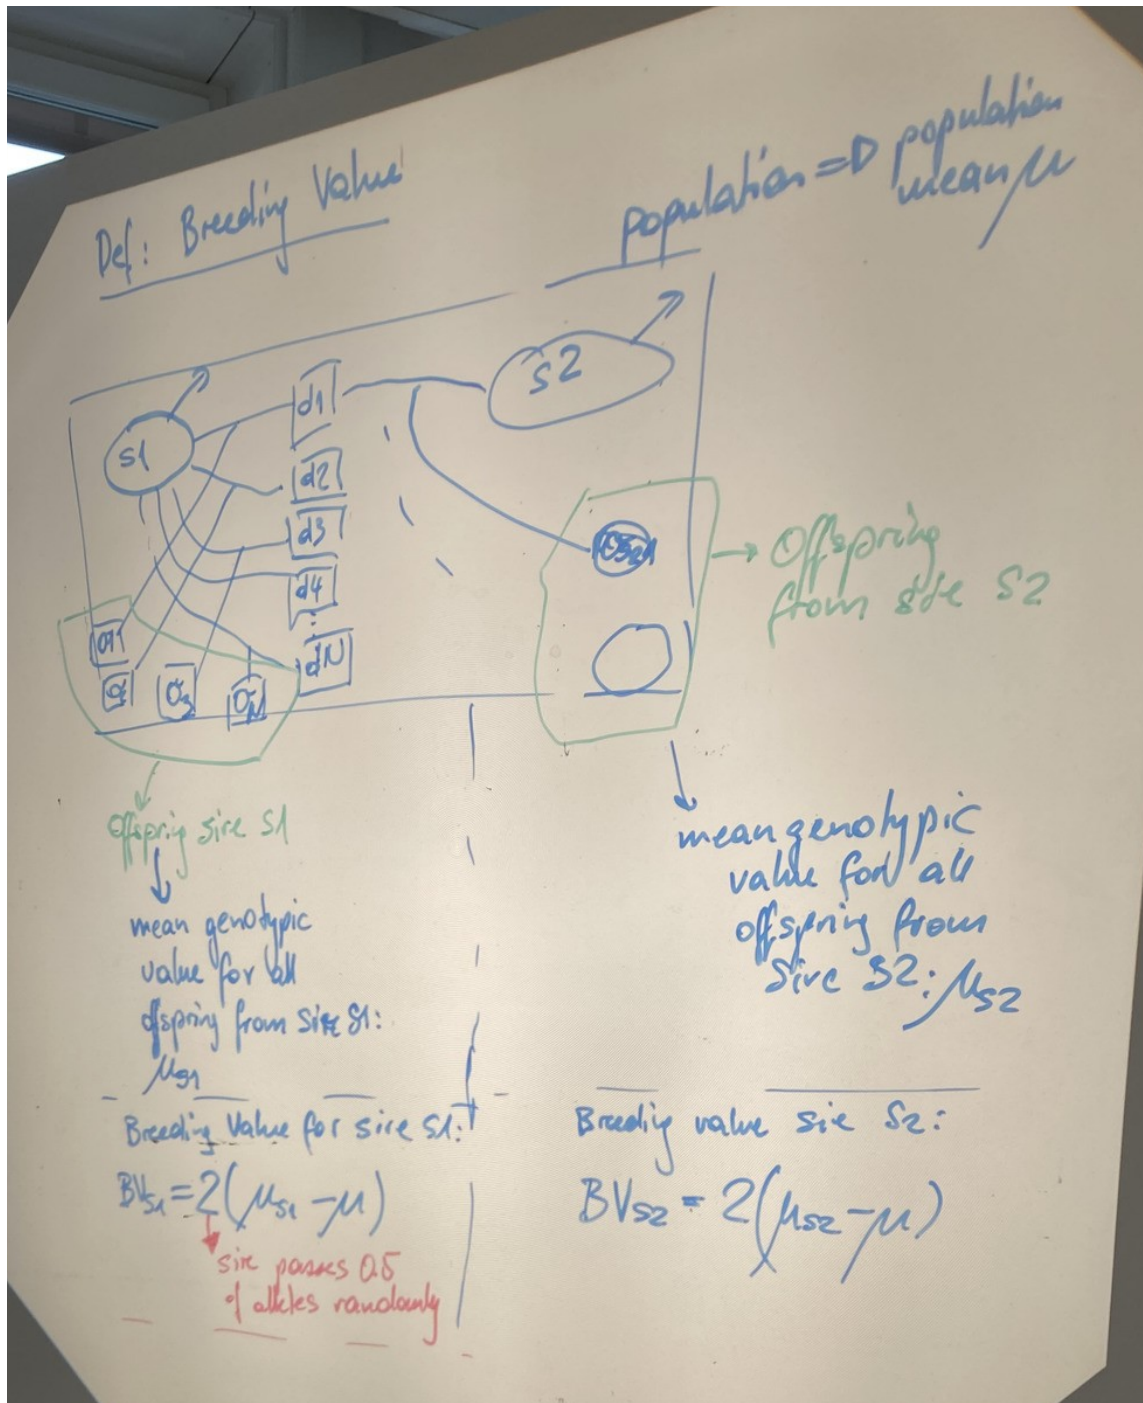 Def: Breeding Value
population => population
mean μ
s1
s2
d1
d2
d3
d4
:
dN
O1
O3
ON
Offspring
from sire S2
Offspring sire S1
mean genotypic
value for all
offspring from sire S1:
μs1
mean genotypic
value for all
offspring from
Sire S2: μs2
Breeding Value for sire S1:
BVs1 = 2(μs1 - μ)
sire passes 0.5
of alleles randomly
Breeding value sie S2:
BVs2 = 2(μs2 - μ)